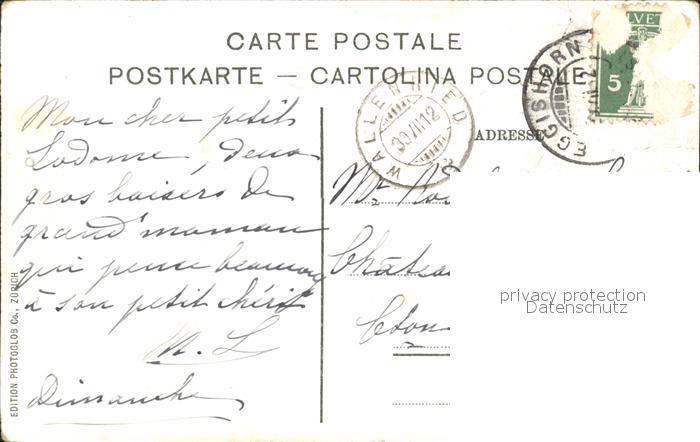 CARTE POSTALE
POSTKARTE — CARTOLINA POSTALE
ADRESSE
EGGISHORN
WALLENRIED
30.VII.12
HELVET
5
Mon cher petit
, deux
gros baisers de
grand'maman
qui pense beaucoup
à son petit chéri
N. L
Dimanche
Mr
Châtea
EDITION PHOTOGLOB Co., ZÜRICH
privacy protection
Datenschutz